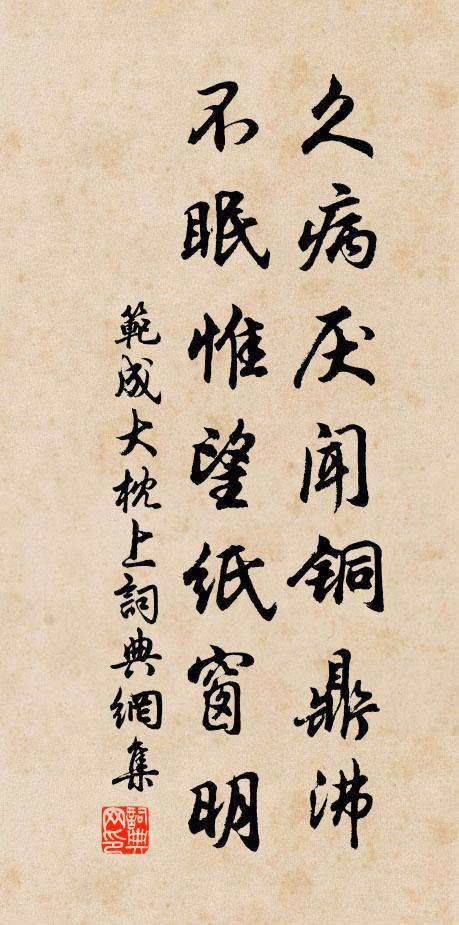 久病厌闻铜鼎沸
不眠惟望纸窗明
範成大枕上詞典網集
詞典網印